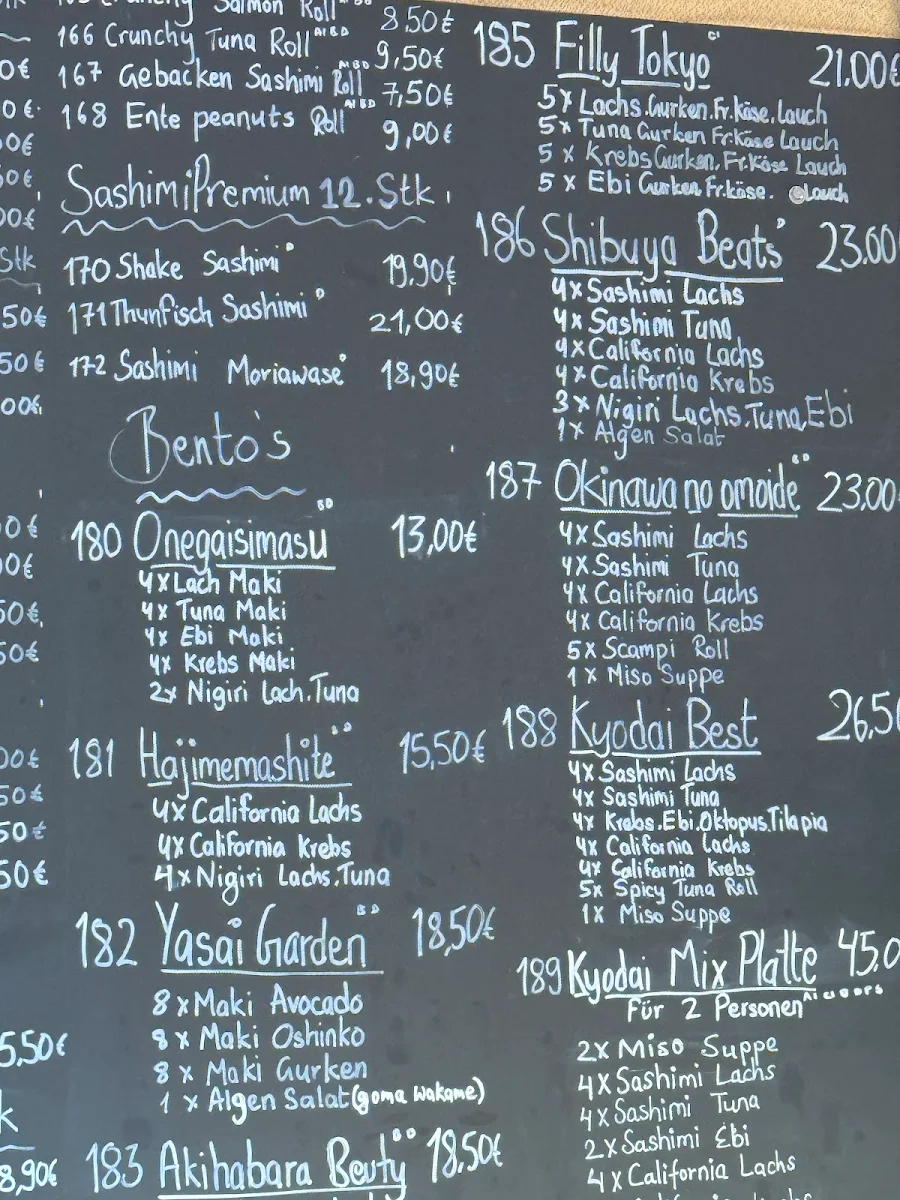 Salmon Roll 8,50€
166 Crunchy Tuna Roll A1BD 9,50€
167 Gebacken Sashimi Roll A1BD 7,50€
168 Ente peanuts Roll A1BD 9,00€
SashimiPremium 12.Stk
170 Shake Sashimi D 19,90€
171 Thunfisch Sashimi D 21,00€
172 Sashimi Moriawase D 18,90€
Bento's
180 Onegaisimasu BD 13,00€
4x Lach Maki
4x Tuna Maki
4x Ebi Maki
4x Krebs Maki
2x Nigiri Lach.Tuna
181 Hajimemashite 15,50€
4x California Lachs
4x California Krebs
4x Nigiri Lachs.Tuna
182 Yasai Garden BD 18,50€
8 x Maki Avocado
8 x Maki Oshinko
8 x Maki Gurken
1 x Algen Salat (goma wakame)
183 Akihabara Beuty 18,50€
185 Filly Tokyo 21,00€
5x Lachs.Gurken.Fr.Käse.Lauch
5x Tuna Gurken Fr.Käse Lauch
5 x Krebs Gurken. Fr.Käse Lauch
5 x Ebi Gurken Fr.käse. Lauch
186 Shibuya Beats 23,00
4x Sashimi Lachs
4x Sashimi Tuna
4x California Lachs
4x California Krebs
3x Nigiri Lachs,Tuna,Ebi
1x Algen Salat
187 Okinawa no omoide 23,00
4x Sashimi Lachs
4x Sashimi Tuna
4x California Lachs
4x California Krebs
5x Scampi Roll
1x Miso Suppe
188 Kyodai Best 26,5
4x Sashimi Lachs
4x Sashimi Tuna
4x Krebs.Ebi.Oktopus.Tilapia
4x California Lachs
4x California Krebs
5x Spicy Tuna Roll
1x Miso Suppe
189 Kyodai Mix Platte 45,0
Für 2 Personen
2x Miso Suppe
4x Sashimi Lachs
4x Sashimi Tuna
2x Sashimi Ebi
4x California Lachs